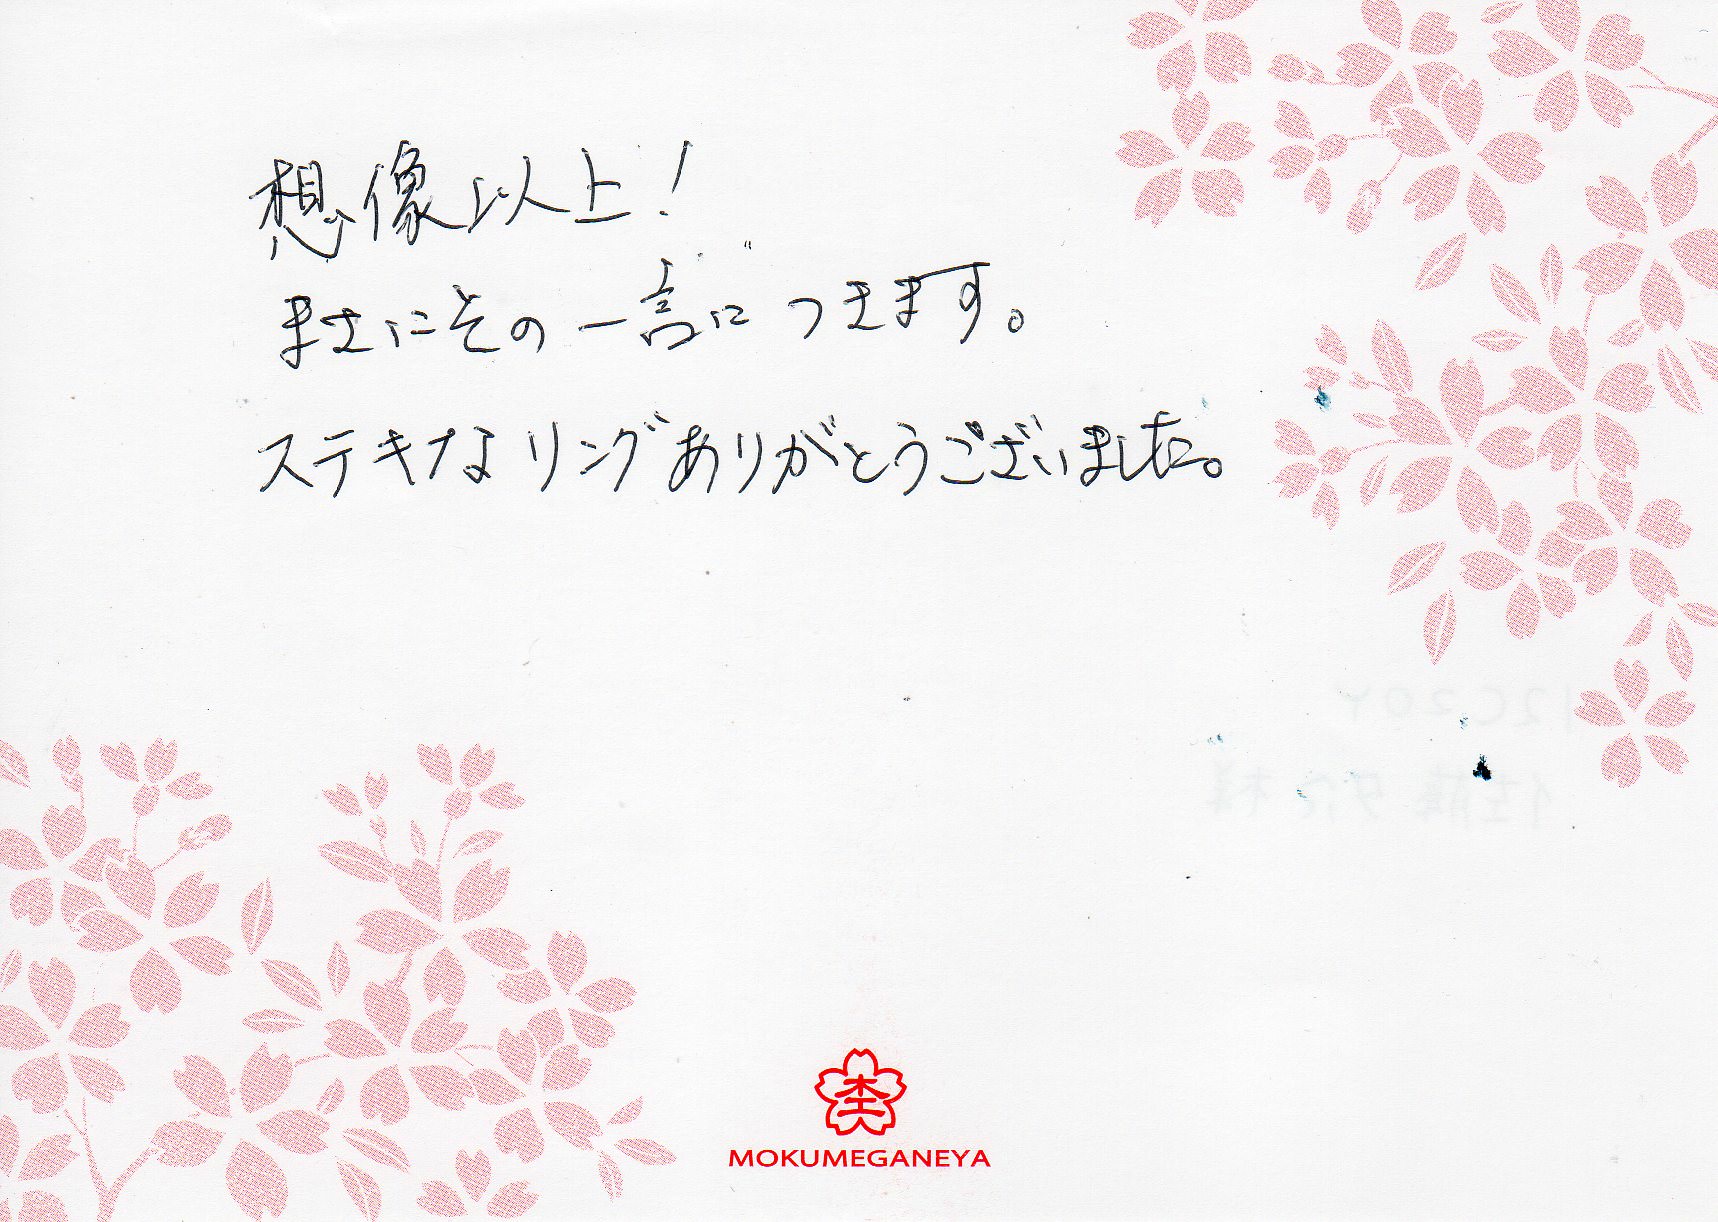 想像以上!
まさにその一言につきます。
ステキなリングありがとうございました。
杢
MOKUMEGANEYA